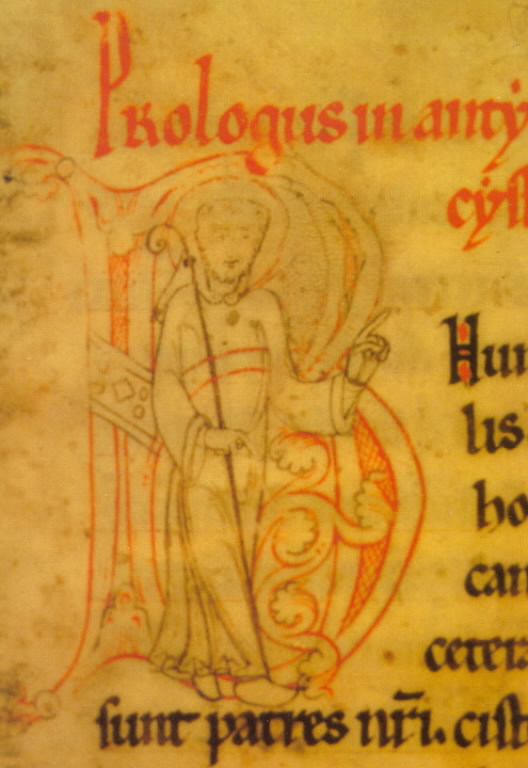 Prologus in anty
cyst
B
Hun
lis
ho
can
ceter
sunt patres nr̅i. cist